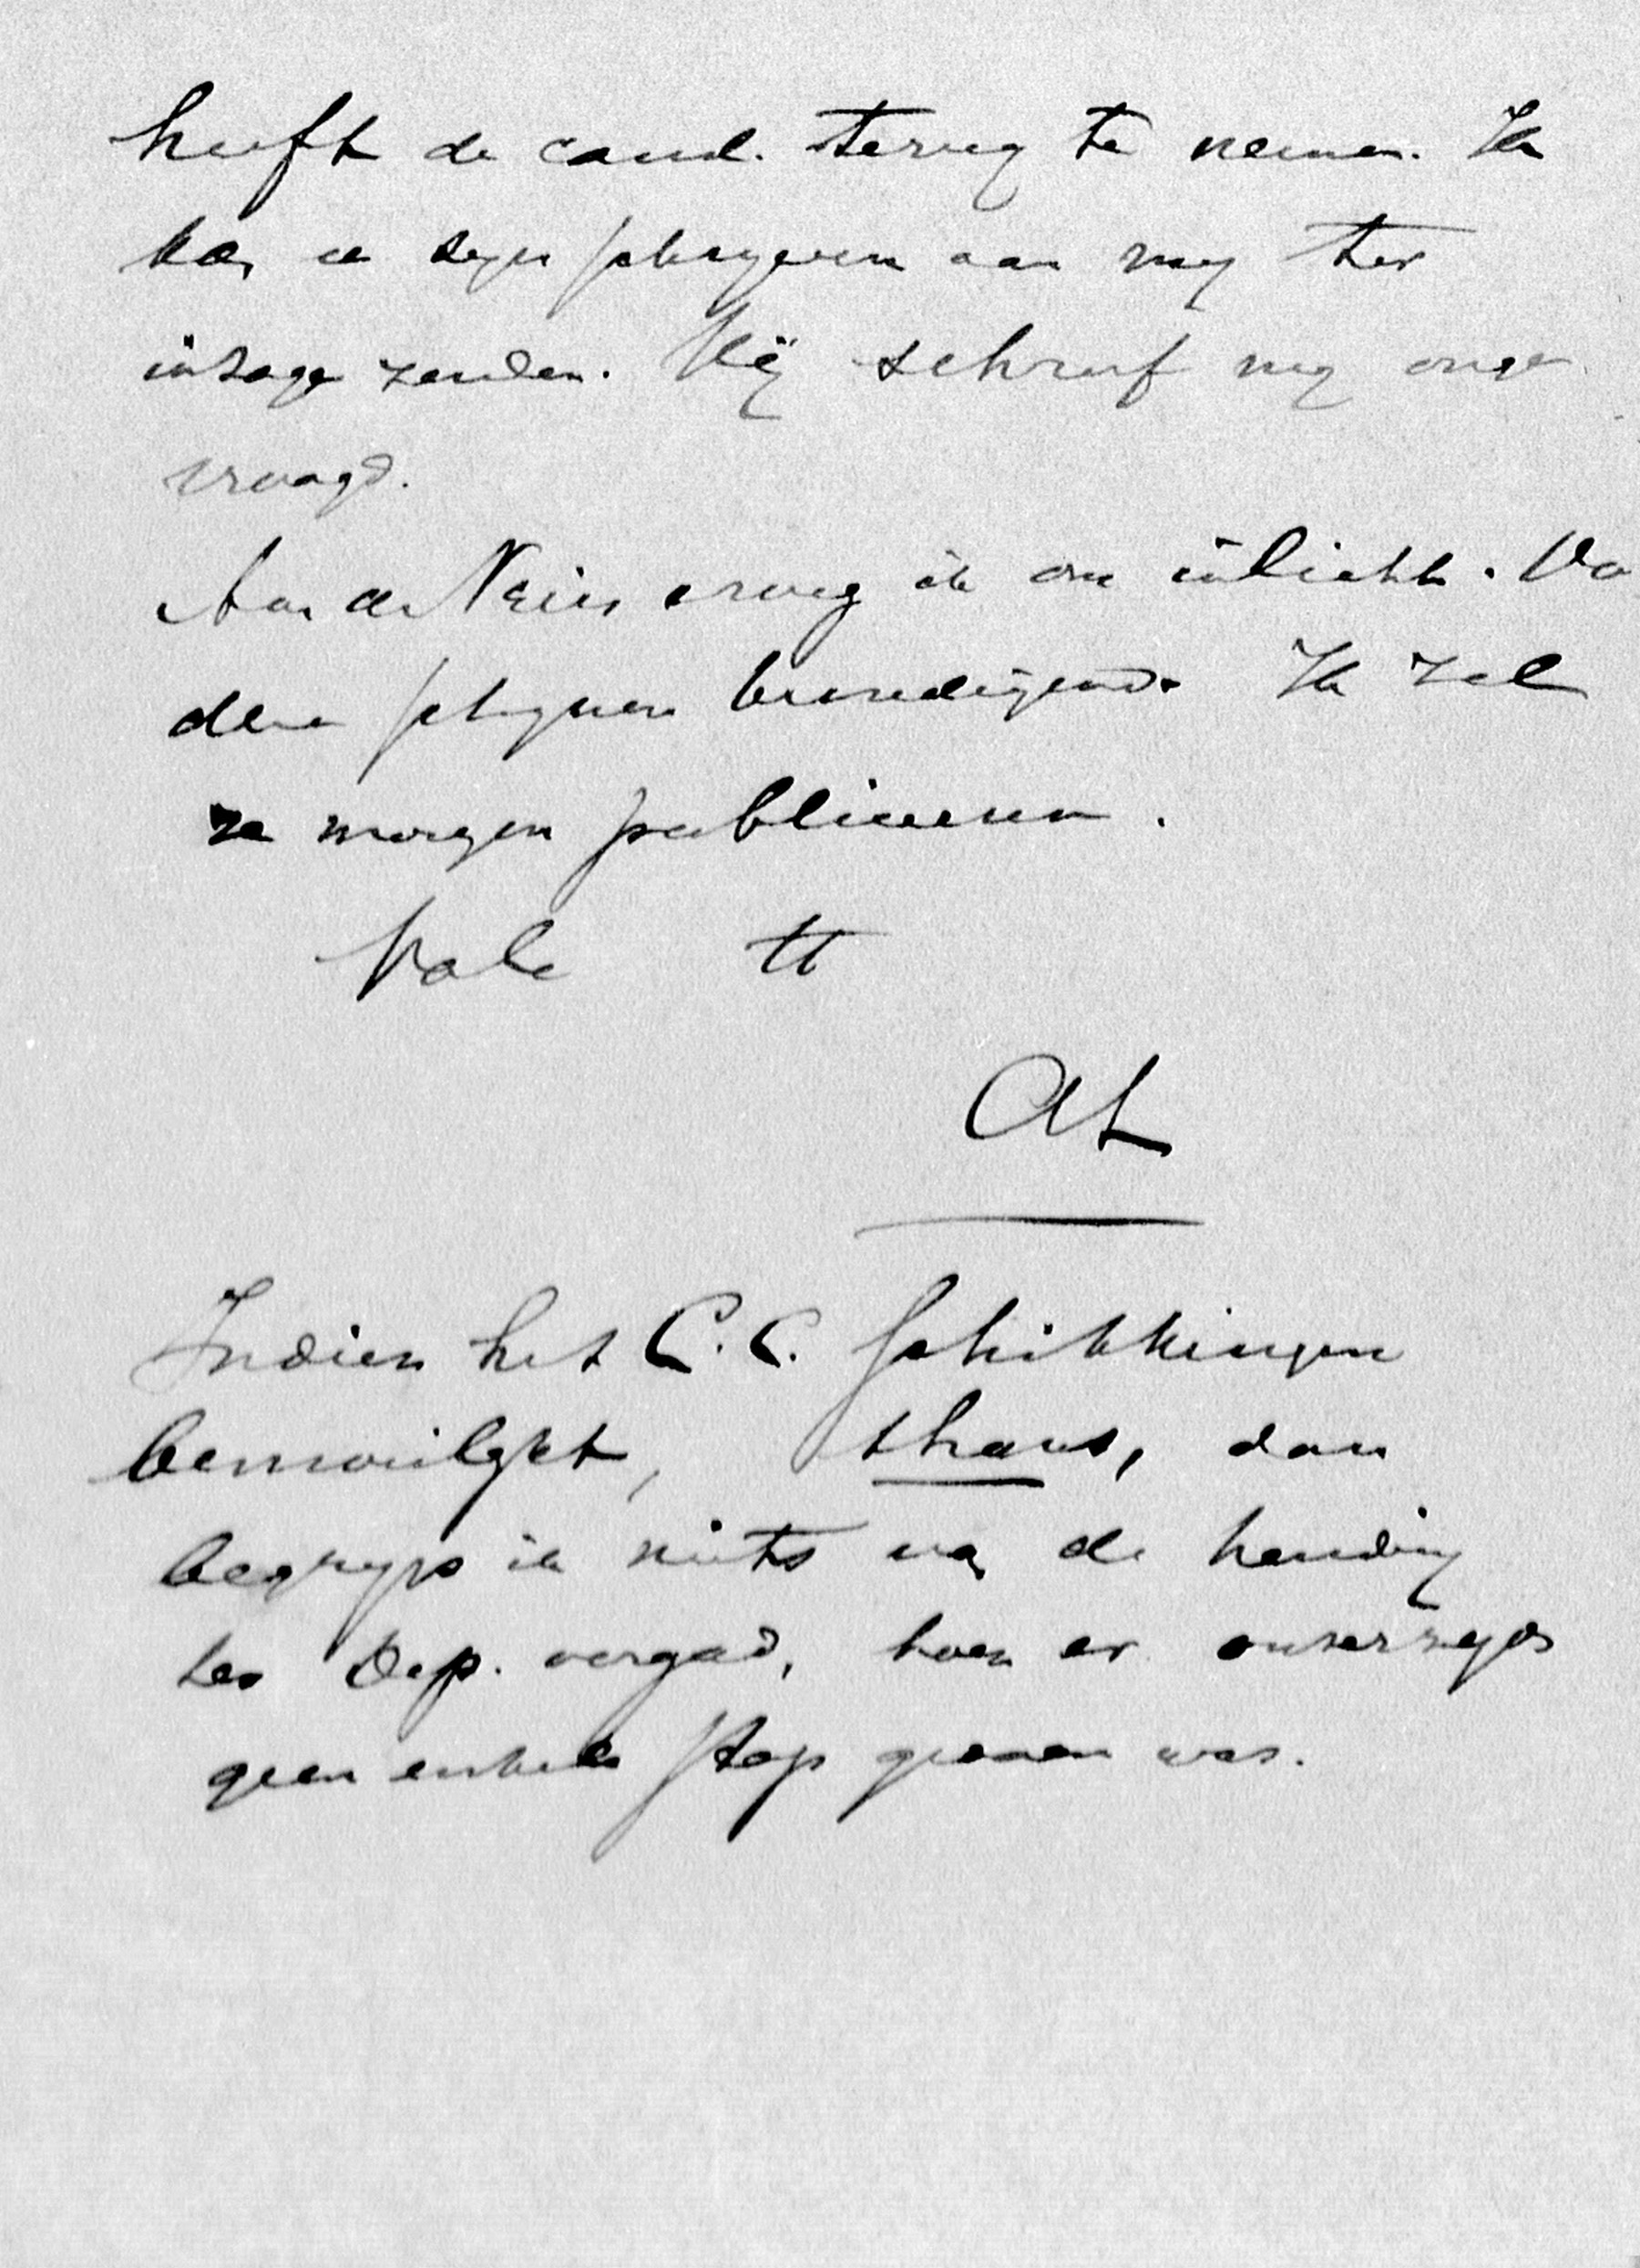 heeft de cand. terug te nemen. Ik
kan u zijn schrijven aan mij ter
inzage zenden. Hij schreef mij onge
vraagd.
Aan de vroeg ik om inlicht.
deze schijnen bevredigend. Ik zal
ze morgen publiceeren.
Vale tt
AK
Indien het C.C. schikkingen
bemoeilijkt, thans, dan
begrijp ik niets van de houding
der Dep. vergad, toen er onzerzijds
geen enkele stap gedaan was.